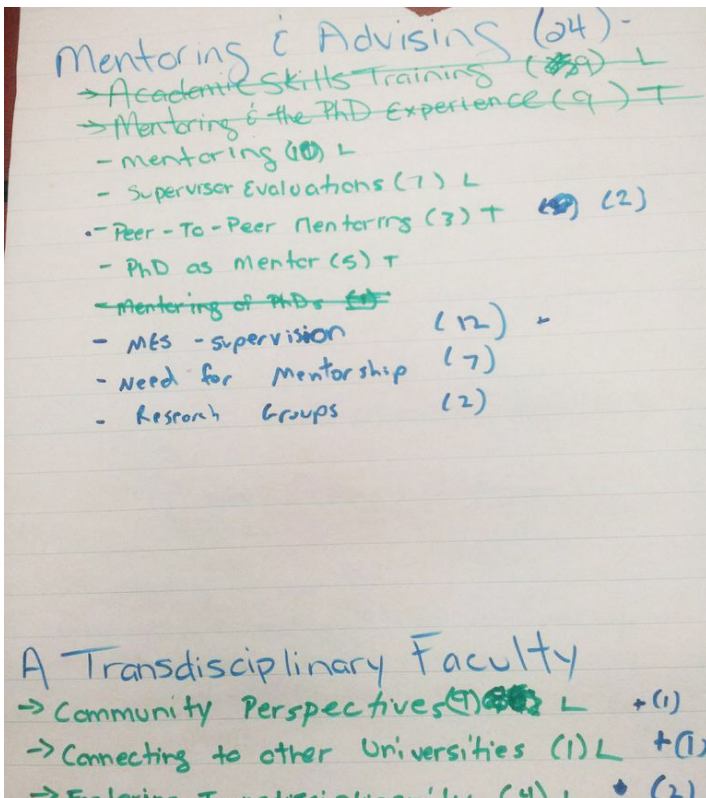 Mentoring & Advising (24) -
→ Academic Skills Training (9) L
→ Mentoring & the PhD Experience (9) T
- mentoring (10) L
- Supervisor Evaluations (7) L
- Peer-To-Peer Mentoring (3) T (2)
- PhD as mentor (5) T
- Mentoring of PhDs
- MES - supervision (12) -
- Need for Mentorship (7)
- Research Groups (2)
A Transdisciplinary Faculty
→ Community Perspectives (9) L +(1)
→ Connecting to other Universities (1) L +(1)
→ Exploring Transdisciplinarity (4) L (2)